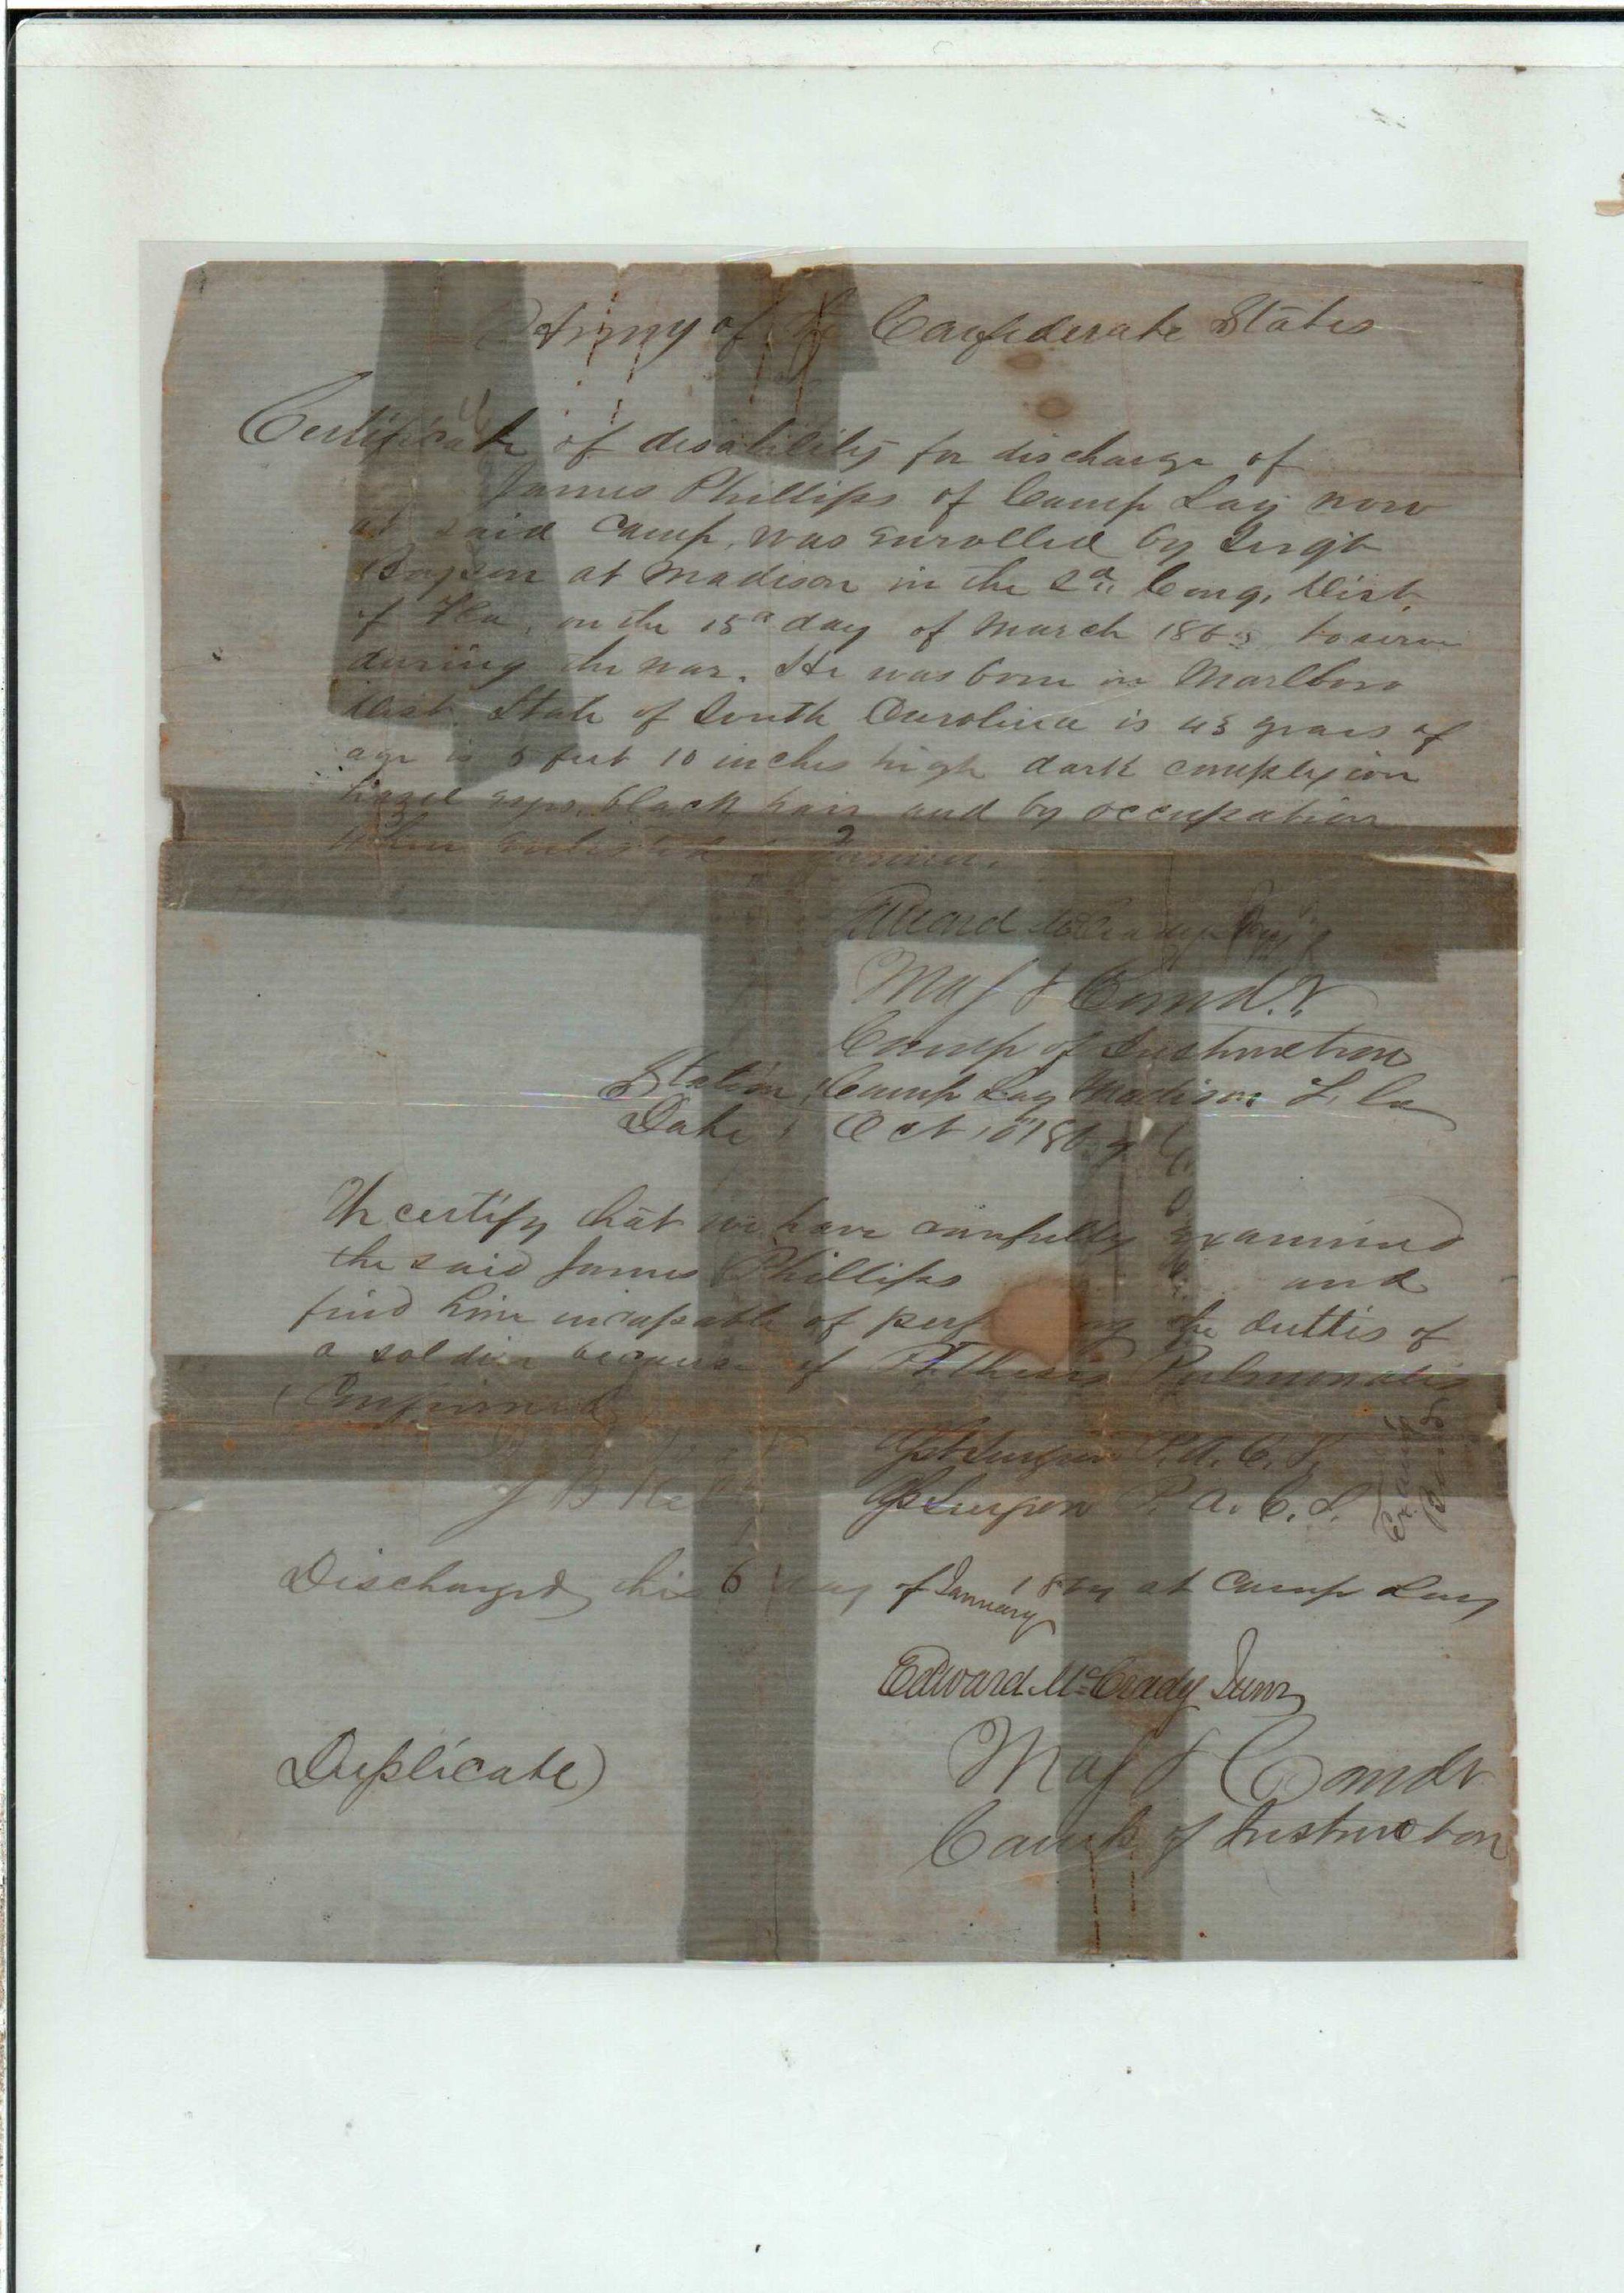 Army of the Confederate States
Certificate of disability for discharge of
James Phillips of Camp Lay now
at said Camp, was enrolled by Sergt
at Madison in the 2d Cong, Dist,
of Fla, on the 15th day of March 1863 to serve
during the war. He was born in Marlboro
Dist State of South Carolina is 43 years of
age is 5 feet 10 inches high dark complexion
hazel eyes, black hair and by occupation
when enlisted a Farmer.
Edward McCrady Junr
Maj & Comdt.
Camp of Instruction
Station, Camp Lay Madison Fla
Date, Oct
We certify that we have carefully examined
the said James Phillips and
find him incapable of perf ng the duttis of
a soldier because of Phthisis Pulmonalis
Confirmed
Surgeon P. A. C. S.
J B Surgeon P. A. C. S.
Discharged this 6 day of January 1864 at Camp Lay
Edward McCrady Junr
Duplicate)
Maj & Comdt
Camp of Instruction